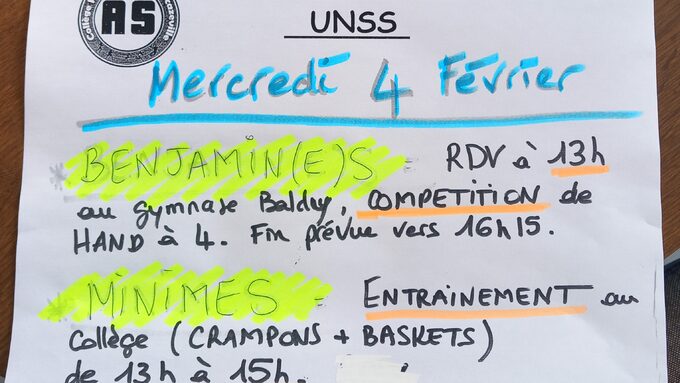 Collège
AS
UNSS
Mercredi 4 Février
* BENJAMIN(E)S - RDV à 13h
au gymnase Balduy, COMPETITION de
HAND à 4. Fin prévue vers 16h15.
* MINIMES - ENTRAINEMENT au
Collège (CRAMPONS + BASKETS)
de 13h à 15h.